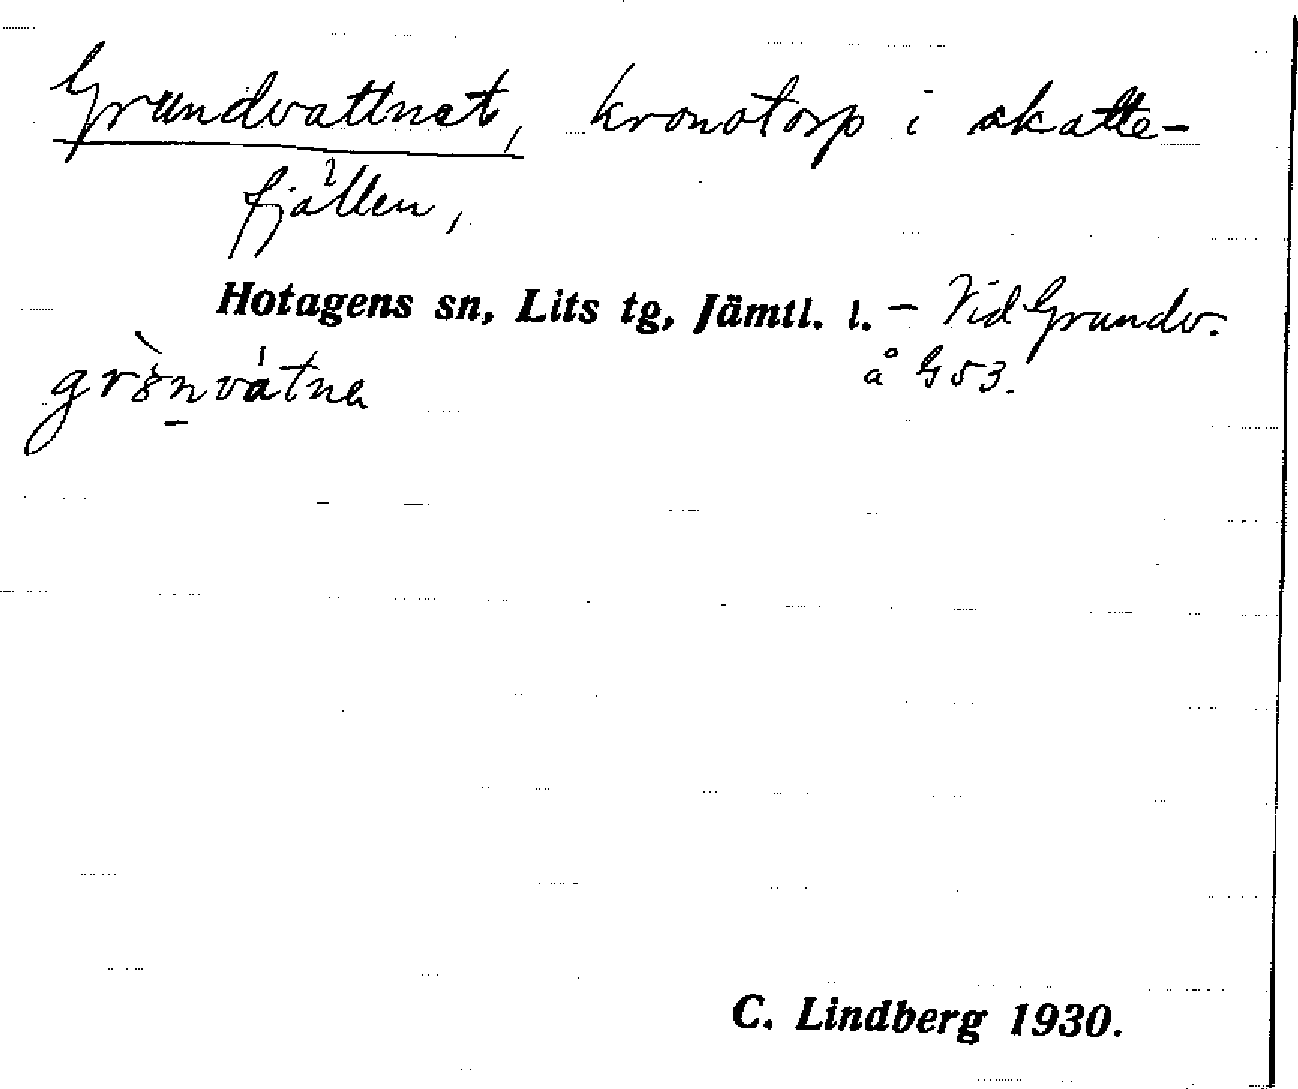 Grundvattnet, kronotorp i skatte-
fjällen,
Hotagens sn, Lits tg, Jämtl. l. – Vid Grundv.
å G 53.
grònvátna
C. Lindberg 1930.